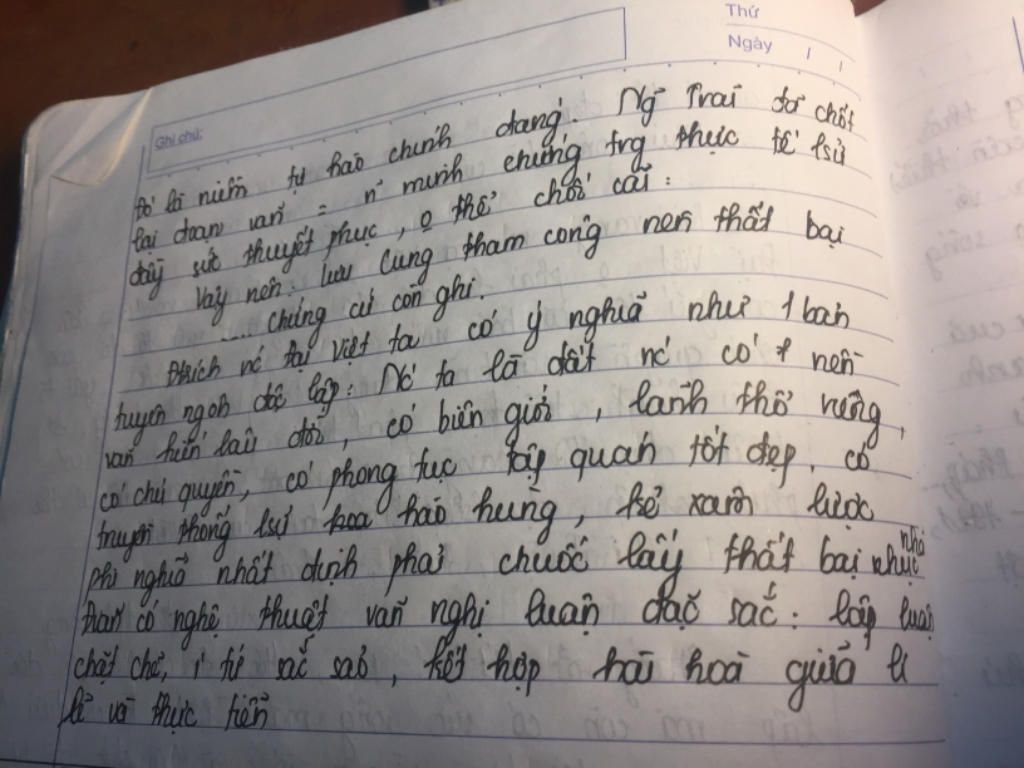 Thứ
Ngày / /
Ghi chú:
tỏ là niềm tự hào chính đáng. Ng Trãi đã chốt
lại đoạn văn = n~ minh chứng trg thực tế lsử
đầy sức thuyết phục, o thể chối cãi:
Vậy nên: Lưu Cung tham công nên thất bại
.... chứng cứ còn ghi.
Đtrích nc đại Việt ta có ý nghĩa như 1 bản
tuyên ngôn độc lập: Nc ta là đất nc có nền
văn hiến lâu đời, có biên giới, lãnh thổ riêng,
có chủ quyền, có phong tục tập quán tốt đẹp, có
truyền thống lsử hào hùng, kẻ xâm lược
phi nghĩa nhất định phải chuốc lấy thất bại nhục nhã
Đtrích có nghệ thuật văn nghị luận đặc sắc: lập luận
chặt chẽ, sắc sảo, kết hợp hài hoà giữa lí
lẽ và thực tiễn